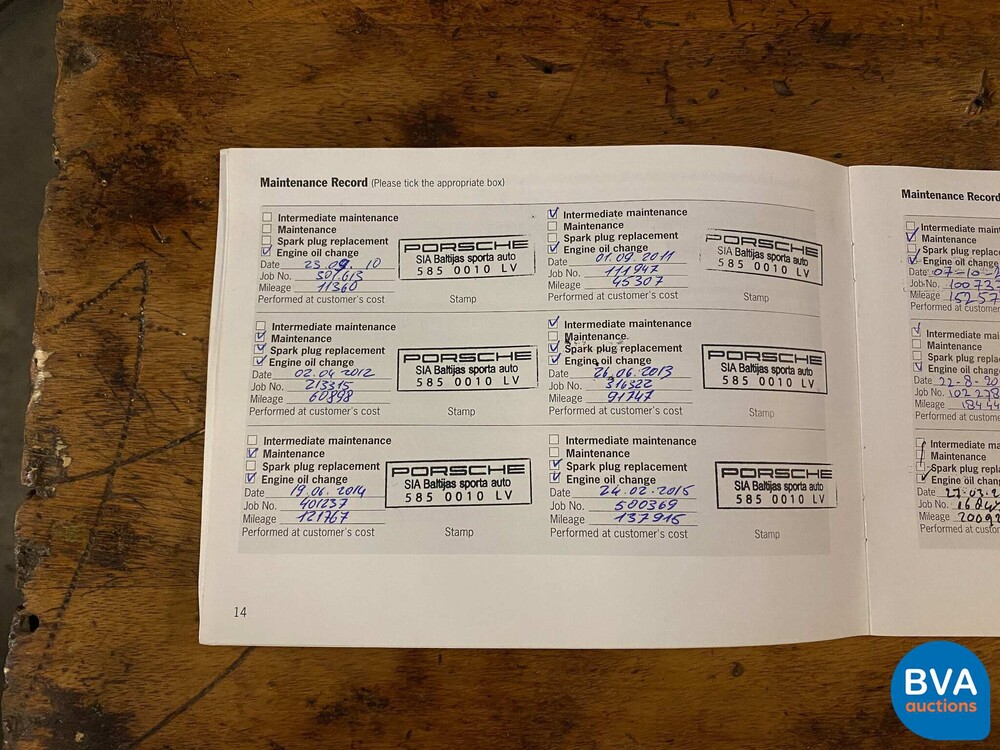 Maintenance Record (Please tick the appropriate box)
Intermediate maintenance
Maintenance
Spark plug replacement
Engine oil change
Date 23.09.10
Job No. 301613
Mileage 11360
Performed at customer's cost
PORSCHE
SIA Baltijas sporta auto
585 0010 LV
Stamp
Intermediate maintenance
Maintenance
Spark plug replacement
Engine oil change
Date 01.09.2011
Job No. 111947
Mileage 45307
Performed at customer's cost
PORSCHE
SIA Baltijas sporta auto
585 0010 LV
Stamp
Intermediate maintenance
Maintenance
Spark plug replacement
Engine oil change
Date 02.04.2012
Job No. 213315
Mileage 60898
Performed at customer's cost
PORSCHE
SIA Baltijas sporta auto
585 0010 LV
Stamp
Intermediate maintenance
Maintenance
Spark plug replacement
Engine oil change
Date 26.06.2013
Job No. 316322
Mileage 91747
Performed at customer's cost
PORSCHE
SIA Baltijas sporta auto
585 0010 LV
Stamp
Intermediate maintenance
Maintenance
Spark plug replacement
Engine oil change
Date 19.06.2014
Job No. 401237
Mileage 121767
Performed at customer's cost
PORSCHE
SIA Baltijas sporta auto
585 0010 LV
Stamp
Intermediate maintenance
Maintenance
Spark plug replacement
Engine oil change
Date 24.02.2015
Job No. 500369
Mileage 137916
Performed at customer's cost
PORSCHE
SIA Baltijas sporta auto
585 0010 LV
Stamp
14
Maintenance Record
Intermediate mainte
Maintenance
Spark plug replacem
Engine oil change
Date 07-10-
Job No. 100737
Mileage 15257
Performed at customer
Intermediate mainte
Maintenance
Spark plug replace
Engine oil change
Date 22-8-20
Job No. 102278
Mileage 18444
Performed at custome
Intermediate ma
Maintenance
Spark plug repla
Engine oil chang
Date 27-03-2
Job No.
Mileage 20092
Performed at custom
BVA
auctions